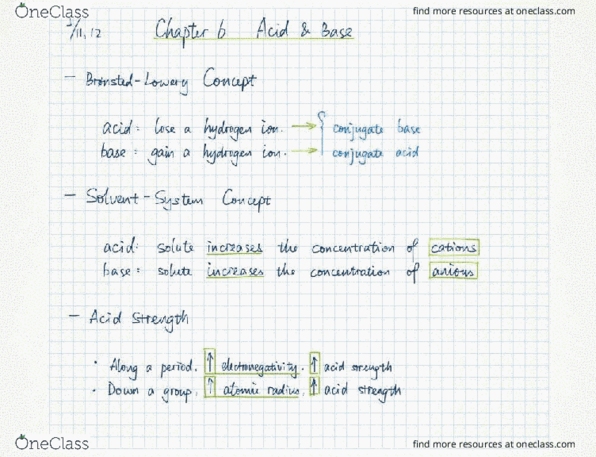 OneClass
find more resources at oneclass.com
3/11, 12
Chapter 6 Acid & Base
- Brønsted-Lowry Concept
acid: lose a hydrogen ion. → { conjugate base
base: gain a hydrogen ion. → conjugate acid
- Solvent-System Concept
acid: solute increases the concentration of cations
base: solute increases the concentration of anions
- Acid Strength
• Along a period, ↑ electronegativity, ↑ acid strength
• Down a group, ↑ atomic radius, ↑ acid strength
OneClass
find more resources at oneclass.com